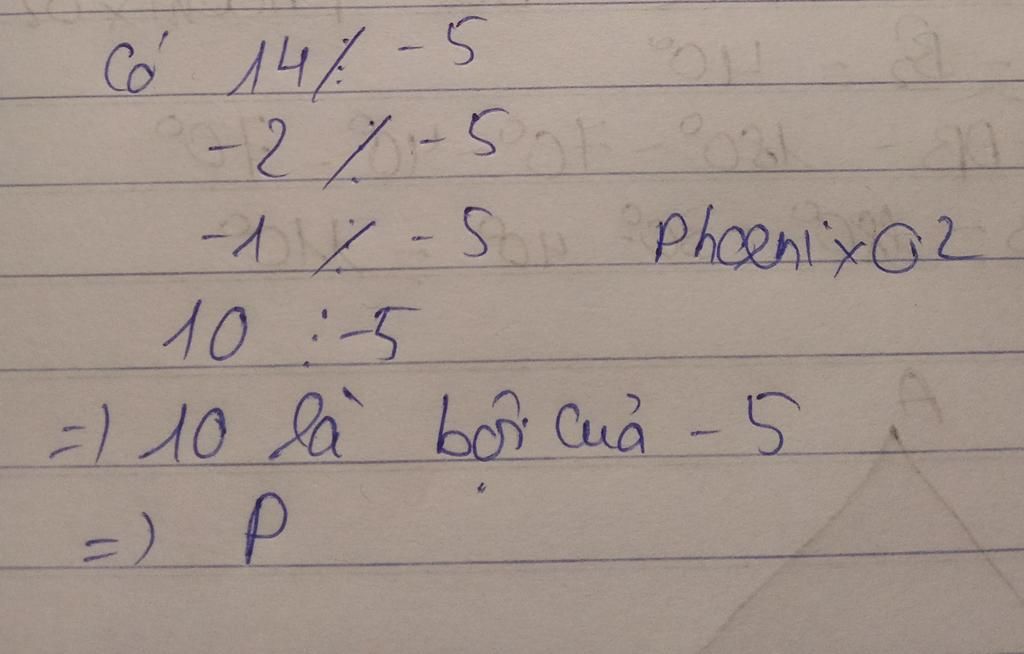 Có 14 ⋮̸ -5
-2 ⋮̸ -5
-1 ⋮̸ -5 Phoenix02
10 ⋮ -5
=) 10 là bội của -5
=) P